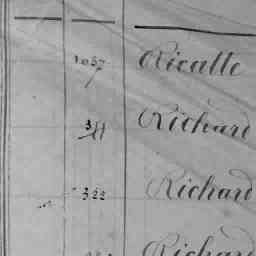 1057 Ricatte
311 Richard
322 Richard
Richard